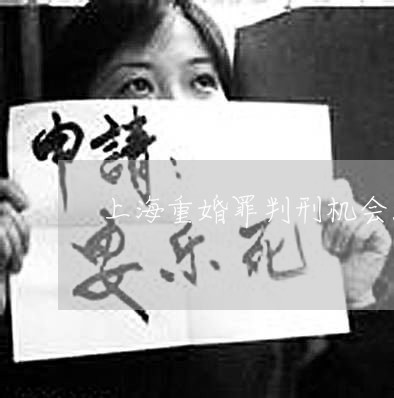 申請：
上海重婚罪判刑机会
安乐死